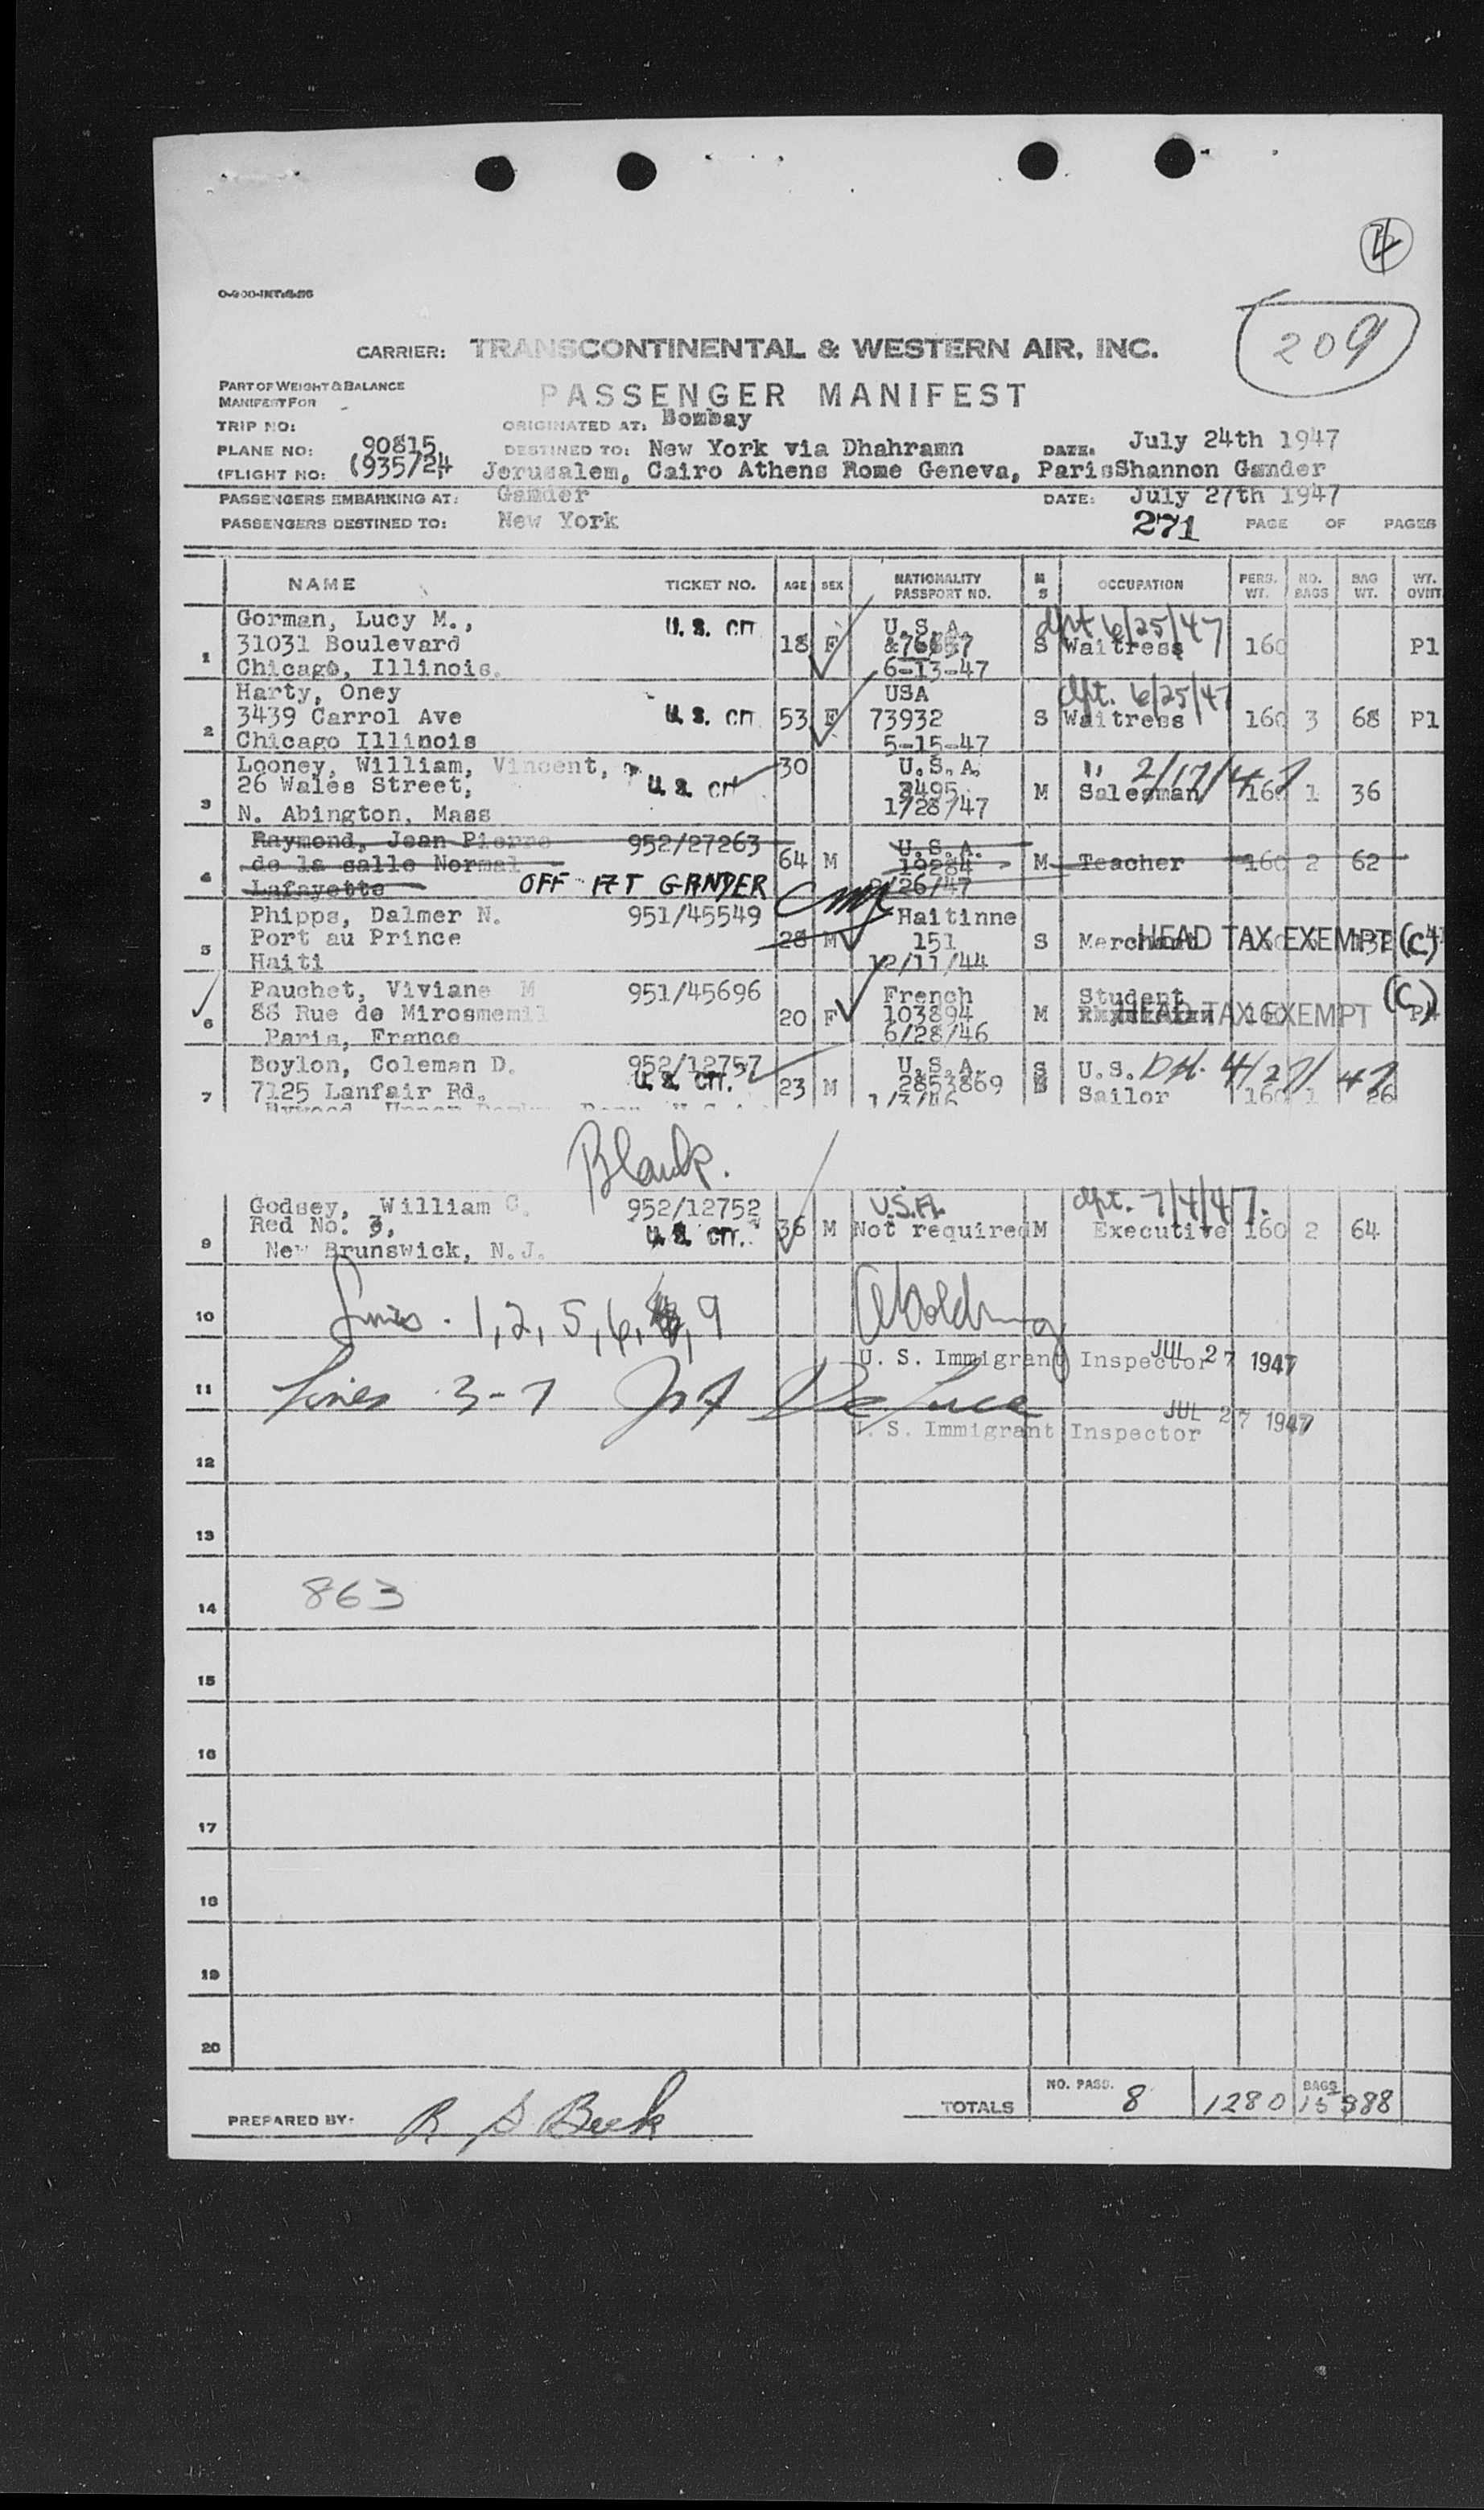 4
209
CARRIER: TRANSCONTINENTAL & WESTERN AIR, INC.
PART OF WEIGHT & BALANCE
MANIFEST FOR
PASSENGER MANIFEST
TRIP NO: ORIGINATED AT: Bombay
PLANE NO: 90815 DESTINED TO: New York via Dhahramn DATE: July 24th 1947
(FLIGHT NO: (935/24 Jerusalem, Cairo Athens Rome Geneva, ParisShannon Gander
PASSENGERS EMBARKING AT: Gander DATE: July 27th 1947
PASSENGERS DESTINED TO: New York 271 PAGE OF PAGES
NAME TICKET NO. AGE SEX NATIONALITY PASSPORT NO. M S OCCUPATION PERS. WT. NO. BAGS BAG WT. WT. OVNT
Gorman, Lucy M., U. S. CIT U.S.A. dpt 6/25/47
1 31031 Boulevard 18 F S Waitress 160 Pl
Chicago, Illinois. 6-13-47
Harty, Oney USA dpt. 6/25/47
2 3439 Carrol Ave U. S. CIT 53 F 73932 S Waitress 160 3 68 Pl
Chicago Illinois 5-15-47
Looney, William, Vincent, 30 U.S.A. 2/17/47
3 26 Wales Street, U. S. CIT 2495 M Salesman 160 1 36
N. Abington, Mass 1/28/47
Raymond, Jean Pierre 952/27263 U.S.A.
4 de la salle Normal 64 M 19284 M Teacher 160 2 62
Lafayette OFF AT GANDER /26/47
Phipps, Dalmer N. 951/45549 Haitinne
5 Port au Prince 28 M 151 S Merchant HEAD TAX EXEMPT (C)
Haiti 12/11/44
Pauchet, Viviane M 951/45696 French Student (C)
6 88 Rue de Mirosmemil 20 F 103894 M HEAD TAX EXEMPT
Paris, France 6/28/46
Boylon, Coleman D. 952/12757 U.S.A. S U.S. 4/27/47
7 7125 Lanfair Rd. U. S. CIT. 23 M 2853869 Sailor 160 1 26
1/3/46
Blank.
Godsey, William C. 952/12752 U.S.A. dpt. 7/4/47.
9 Red No. 3, U. S. CIT. 36 M Not required M Executive 160 2 64
New Brunswick, N.J.
10 Lines. 1, 2, 5, 6, 9
U. S. Immigrant Inspector JUL 27 1947
11 Lines 3-7 De Luca
U. S. Immigrant Inspector JUL 27 1947
12
13
14 863
15
16
17
18
19
20
PREPARED BY: R S Beck TOTALS NO. PASS. 8 1280 BAGS 15 388